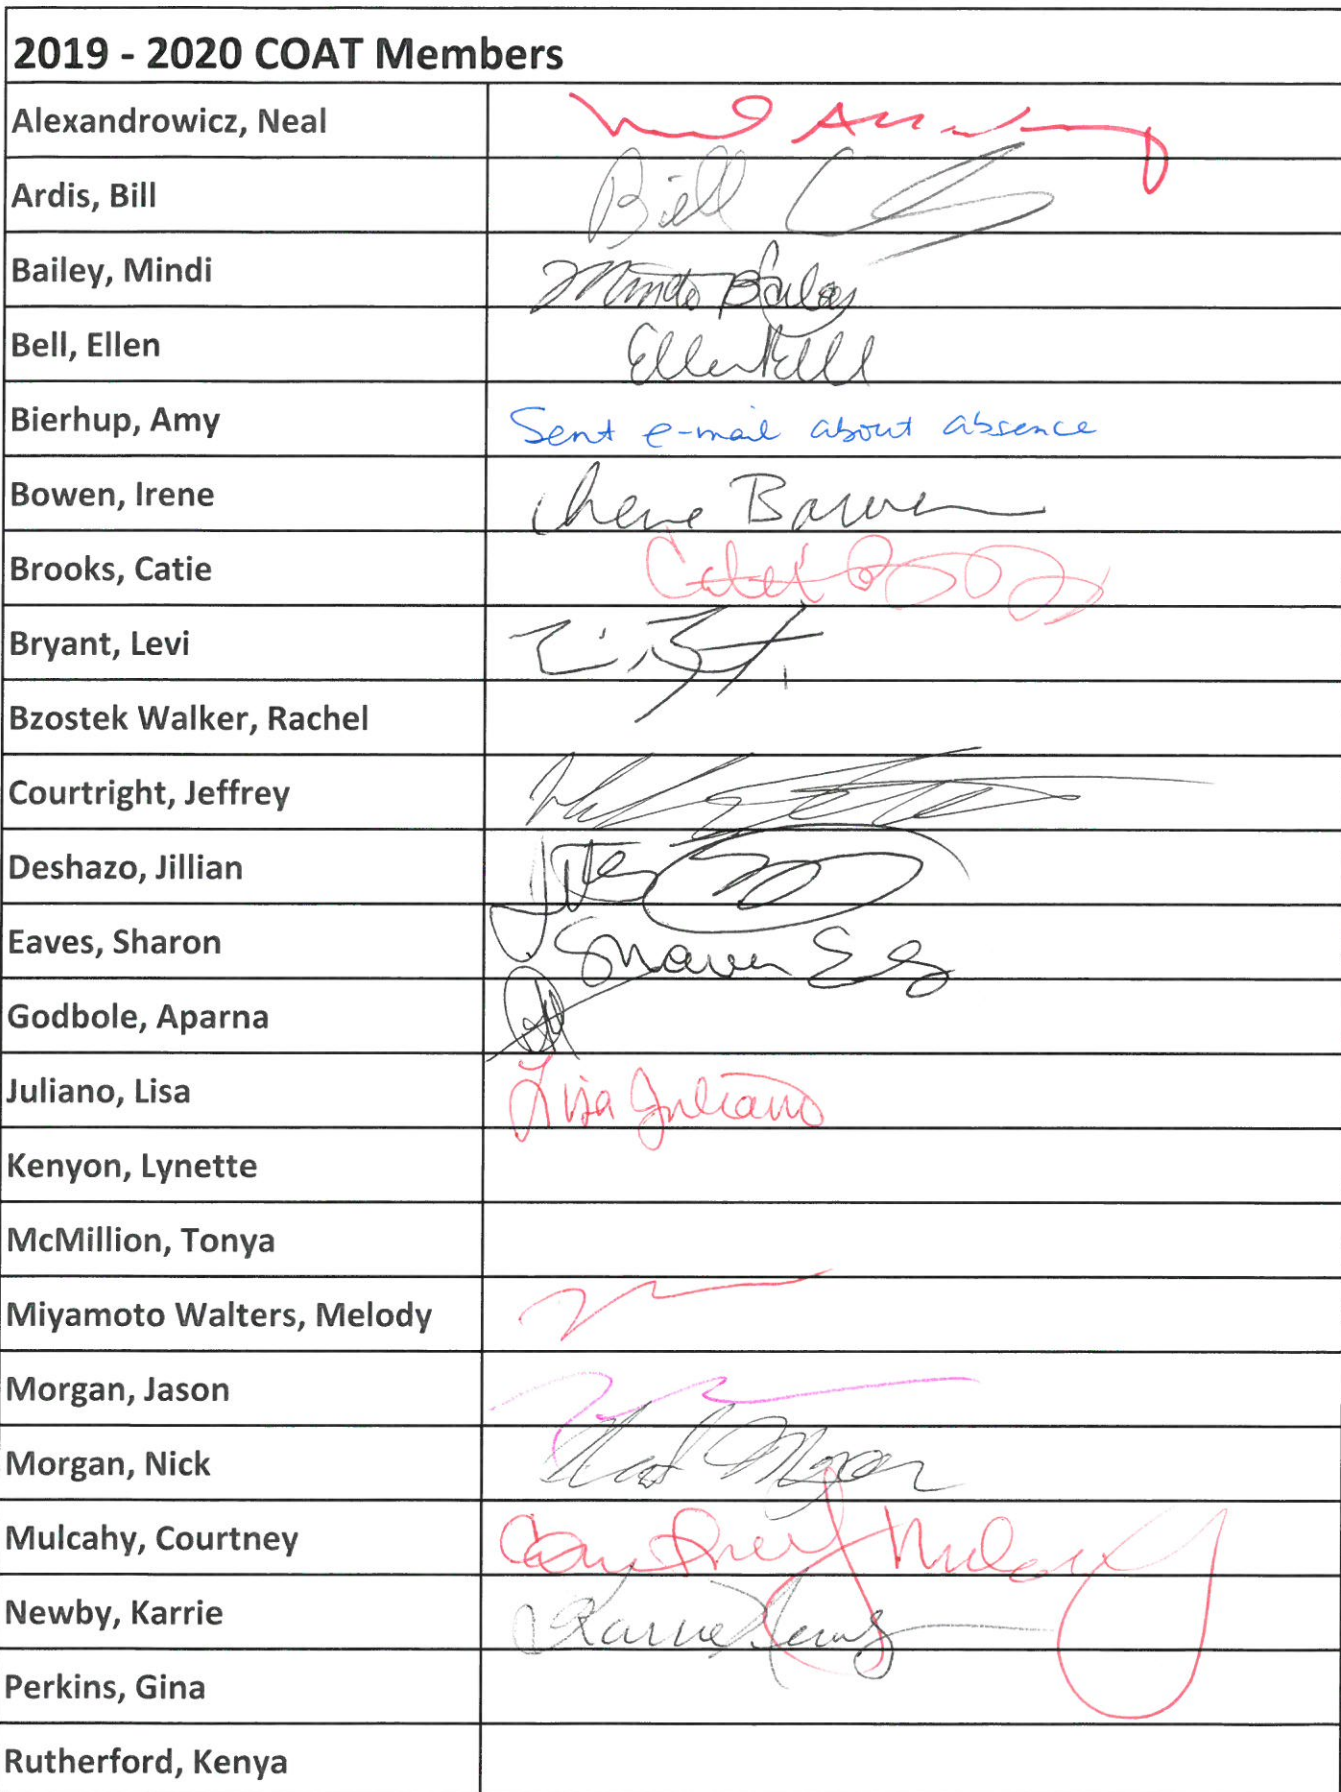 2019 - 2020 COAT Members
Alexandrowicz, Neal
Ardis, Bill Bill
Bailey, Mindi Mindi Bailey
Bell, Ellen Ellen Bell
Bierhup, Amy Sent e-mail about absence
Bowen, Irene Irene Bowen
Brooks, Catie
Bryant, Levi
Bzostek Walker, Rachel
Courtright, Jeffrey
Deshazo, Jillian
Eaves, Sharon Sharon
Godbole, Aparna
Juliano, Lisa Lisa Juliano
Kenyon, Lynette
McMillion, Tonya
Miyamoto Walters, Melody
Morgan, Jason
Morgan, Nick Morgan
Mulcahy, Courtney Courtney Mulcahy
Newby, Karrie Karrie
Perkins, Gina
Rutherford, Kenya